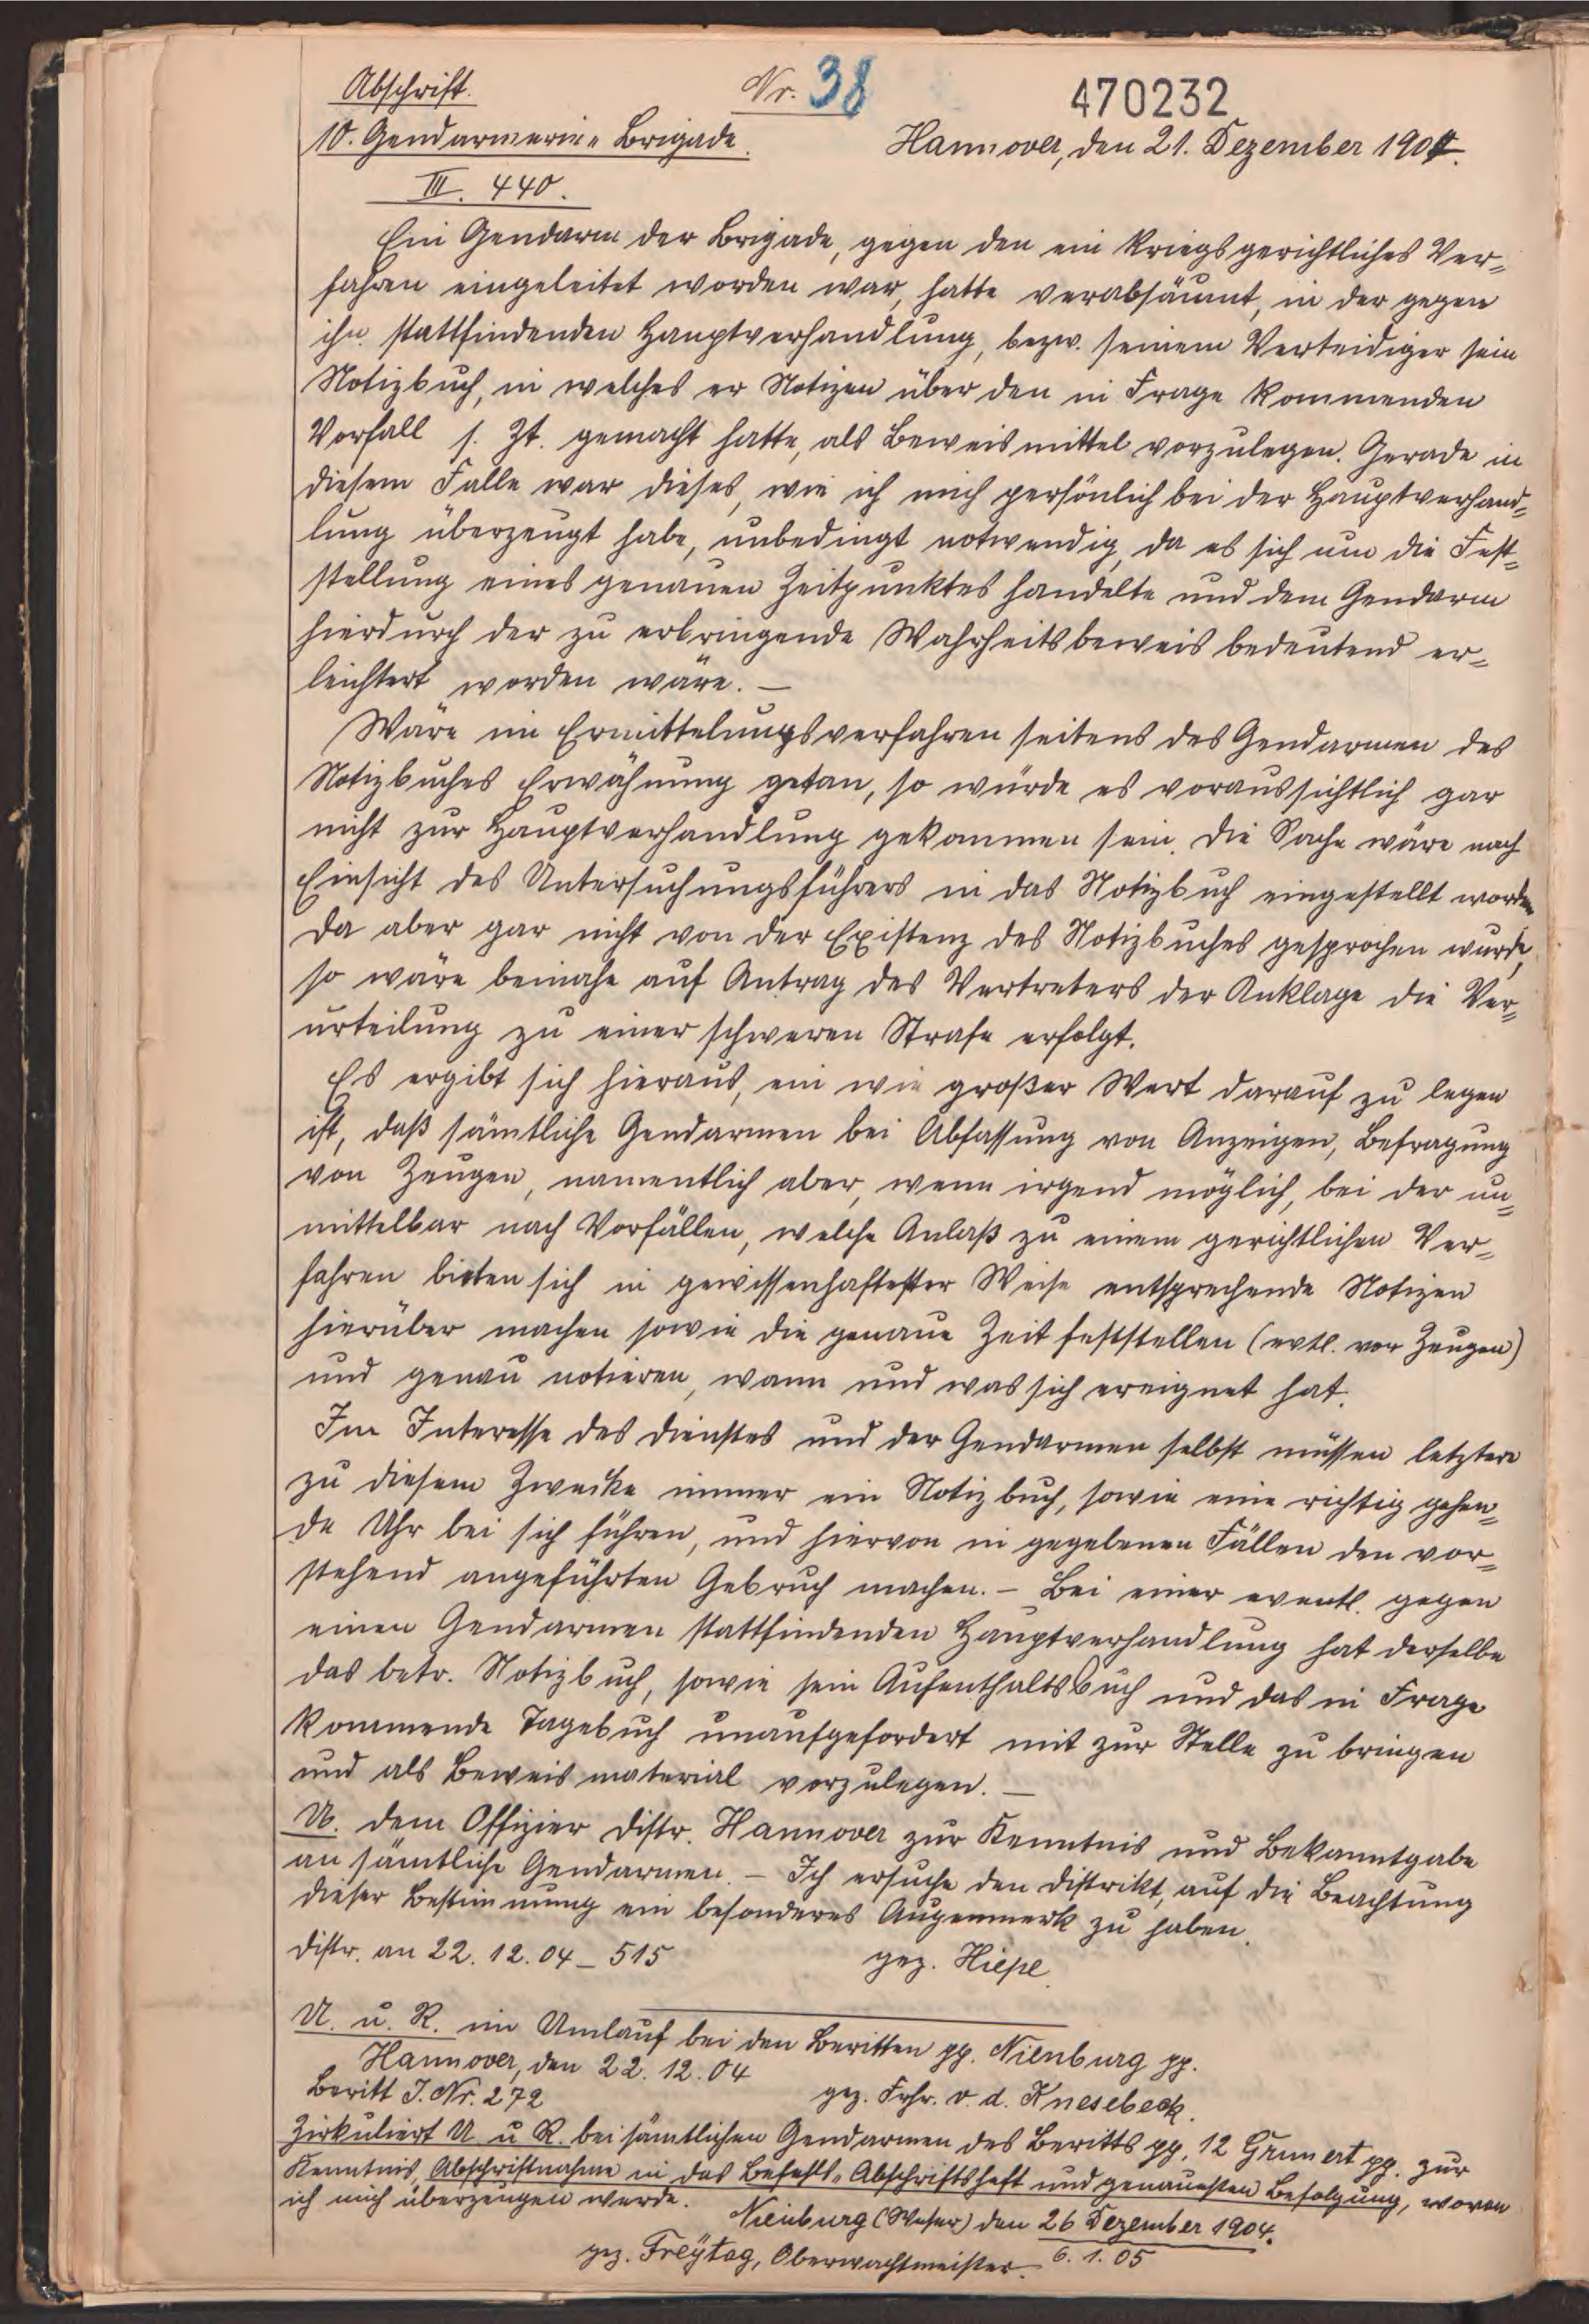 Abschrift. Nr. 38 470232
10. Gendarmerie-Brigade. Hannover, den 21. Dezember 1904.
III. 440.
Ein Gendarm der Brigade, gegen den ein kriegsgerichtliches Ver-
fahren eingeleitet worden war, hatte verabsäumt, in der gegen
ihn stattfindenden Hauptverhandlung, bezw. seinem Verteidiger sein
Notizbuch, in welches er Notizen über den in Frage kommenden
Vorfall s. Zt. gemacht hatte, als Beweismittel vorzulegen. Gerade in
diesem Falle war dieses, wie ich mich persönlich bei der Hauptverhand-
lung überzeugt habe, unbedingt notwendig, da es sich um die Fest-
stellung eines genauen Zeitpunktes handelte und dem Gendarm
hierdurch der zu erbringende Wahrheitsbeweis bedeutend er-
leichtert worden wäre. —
Wäre im Ermittelungsverfahren seitens des Gendarmen des
Notizbuches Erwähnung getan, so würde es voraussichtlich gar
nicht zur Hauptverhandlung gekommen sein. Die Sache wäre nach
Einsicht des Untersuchungsführers in das Notizbuch eingestellt worden
da aber gar nicht von der Existenz des Notizbuches gesprochen wurde,
so wäre beinahe auf Antrag des Vertreters der Anklage die Ver-
urteilung zu einer schweren Strafe erfolgt.
Es ergibt sich hieraus, ein wie großer Wert darauf zu legen
ist, daß sämtliche Gendarmen bei Abfassung von Anzeigen, Befragung
von Zeugen, namentlich aber, wenn irgend möglich, bei der un-
mittelbar nach Vorfällen, welche Anlaß zu einem gerichtlichen Ver-
fahren bieten sich in gewissenhaftester Weise entsprechende Notizen
hierüber machen sowie die genaue Zeit feststellen (evtl. vor Zeugen)
und genau notieren, wann und was sich ereignet hat.
Im Interesse des Dienstes und der Gendarmen selbst müssen letztere
zu diesem Zwecke immer ein Notizbuch, sowie eine richtig gehen-
de Uhr bei sich führen, und hiervon in gegebenen Fällen den vor-
stehend angeführten Gebruch machen. — Bei einer eventl. gegen
einen Gendarmen stattfindenden Hauptverhandlung hat derselbe
das betr. Notizbuch, sowie sein Aufenthaltsbuch und das in Frage
kommende Tagebuch unaufgefordert mit zur Stelle zu bringen
und als Beweismaterial vorzulegen. —
U. dem Offizier Distr. Hannover zur Kenntnis und Bekanntgabe
an sämtliche Gendarmen. — Ich ersuche den Distrikt, auf die Beachtung
dieser Bestimmung ein besonderes Augenmerk zu haben.
Distr. an 22. 12. 04 — 515 gez. Hiepe.
U. u. R. im Umlauf bei den Beritten pp. Nienburg pp.
Hannover, den 22. 12. 04
Beritt J. Nr. 272 gez. Frhr. v. d. Knesebeck.
Zirkuliert U. u. R. bei sämtlichen Gendarmen des Beritts pp. 12 Grunert pp. zur
Kenntnis, Abschriftnahme in das Befehls-Abschriftsheft und genauesten Befolgung, wovon
ich mich überzeugen werde.
Nienburg (Weser) den 26 Dezember 1904.
gez. Freÿtag, Oberwachtmeister. 6. 1. 05